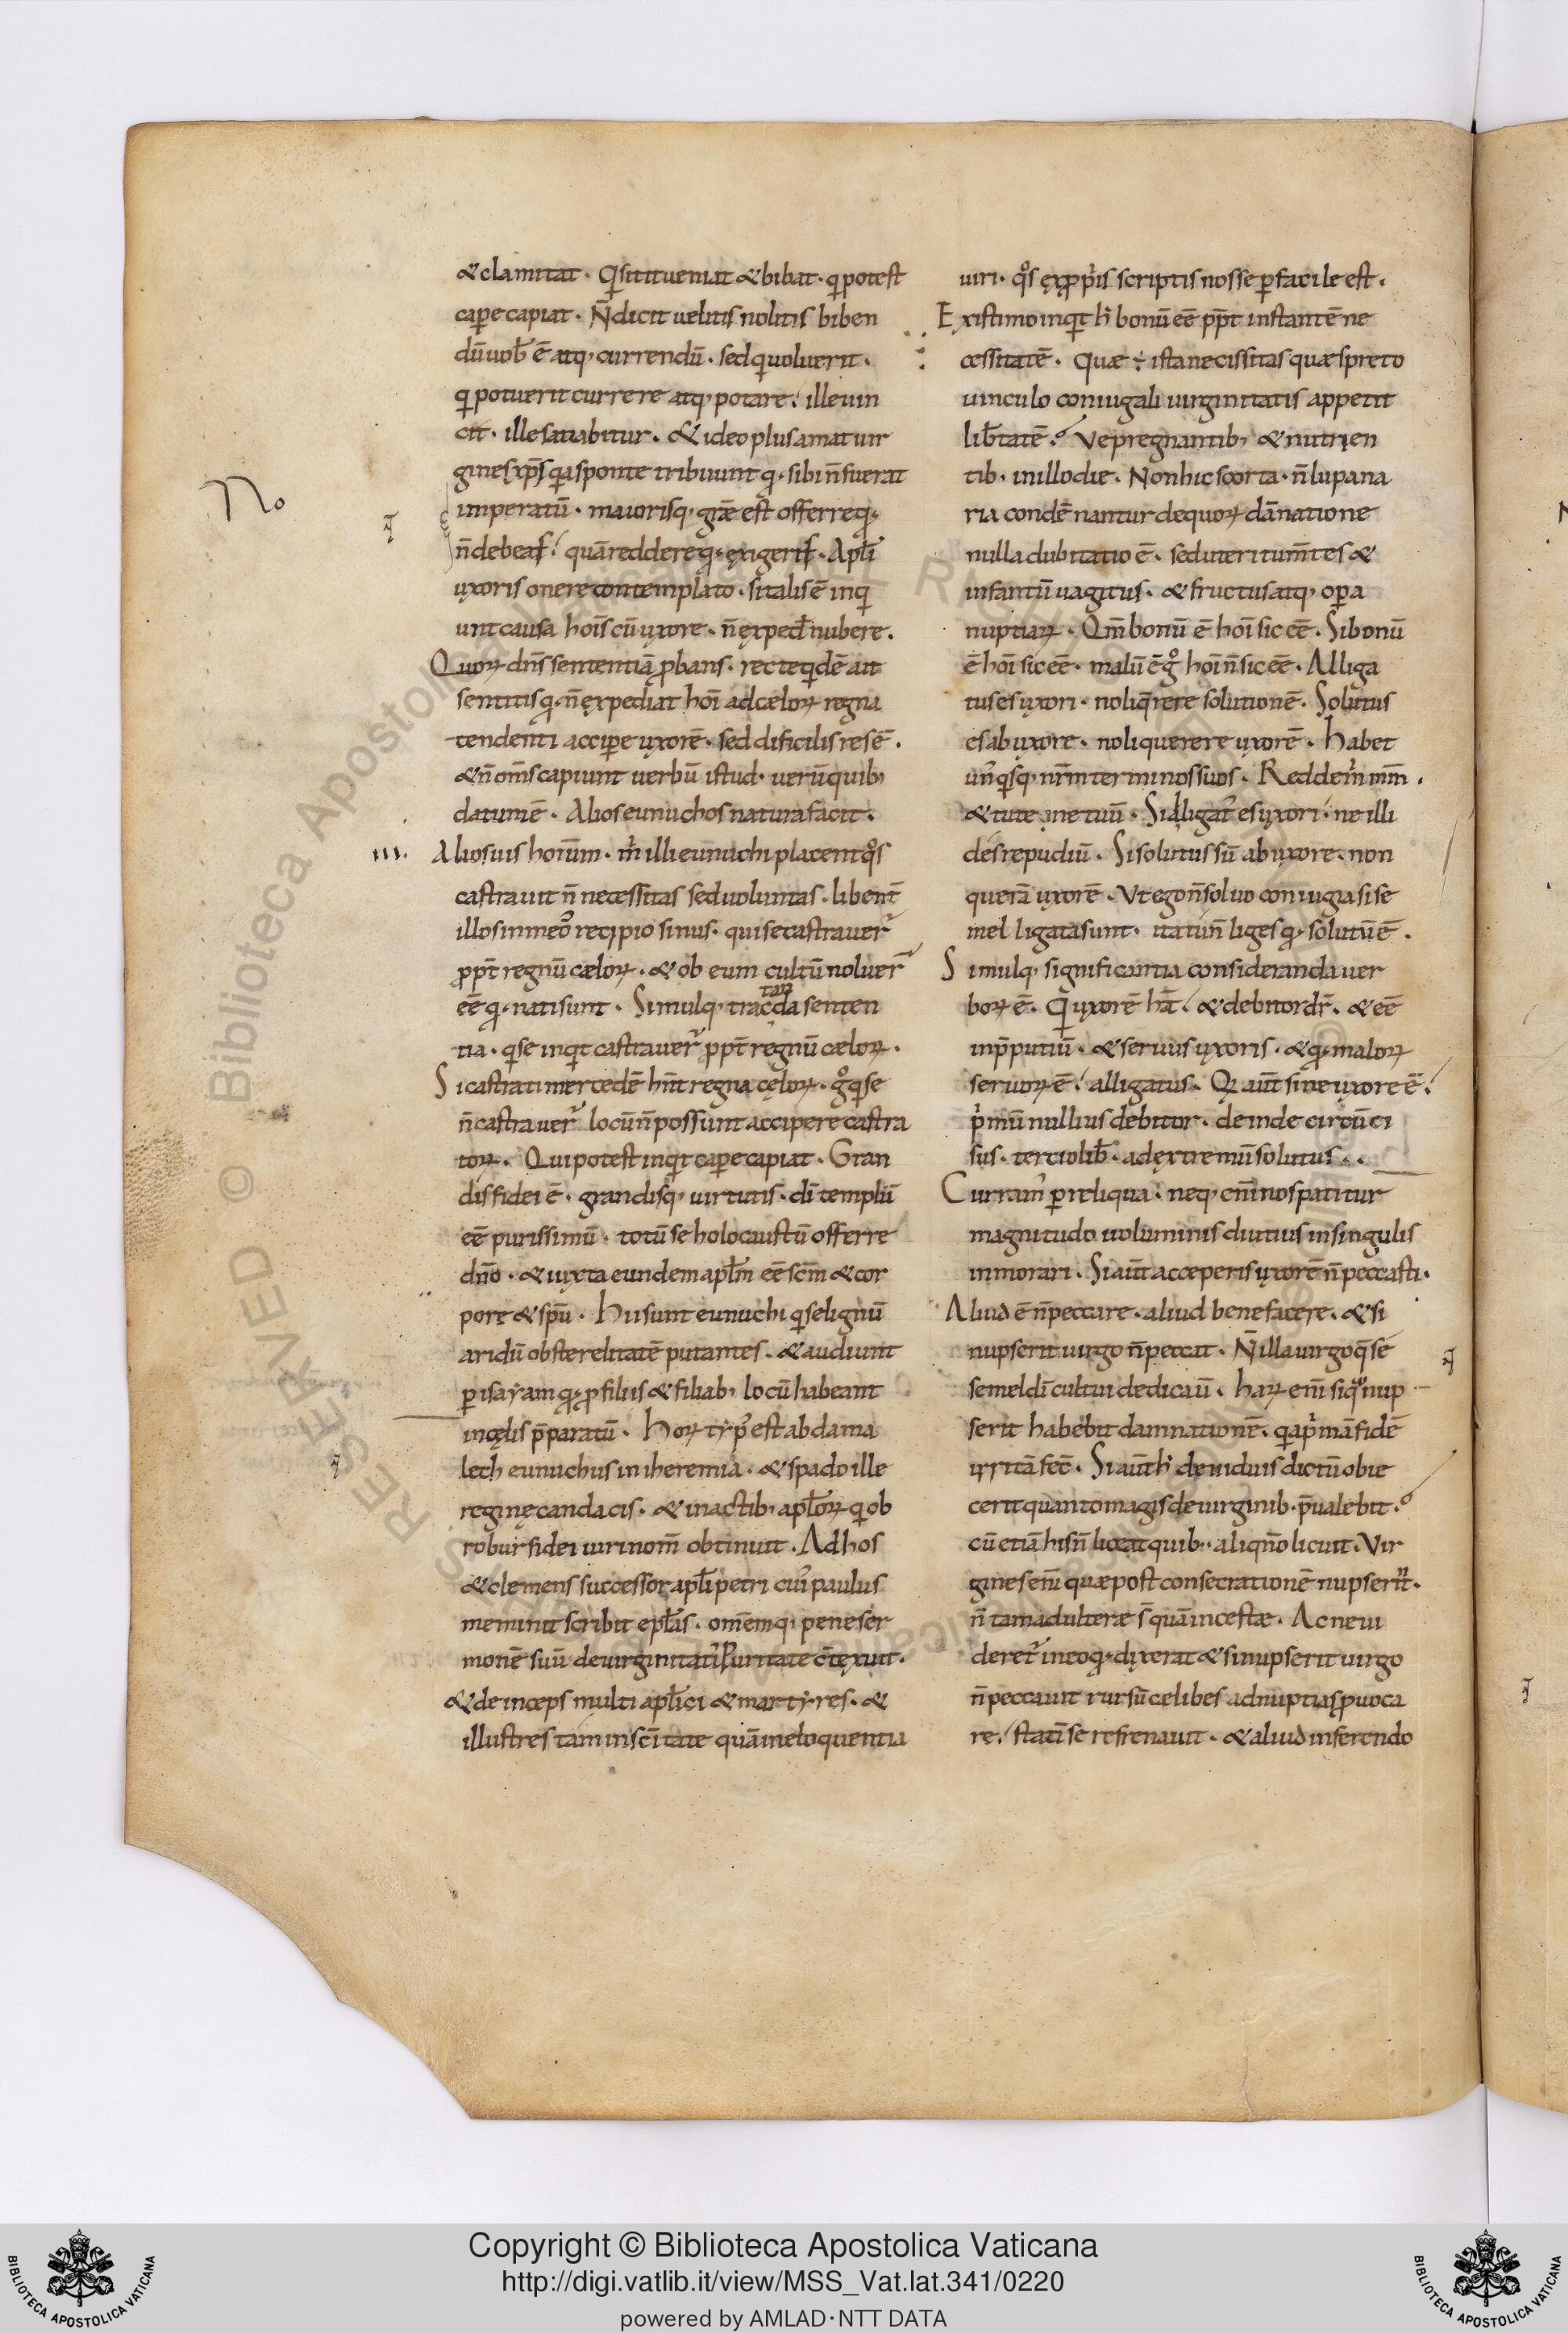 &clamitat. Qi sitit ueniat & bibat. qi potest
capere capiat. N̄ dicit uelitis nolitis biben
dū uob̄ ē atq; currendū. sed qi uoluerit.
qi potuerit currere atq; potare. ille uin
cit. ille satiabitur. & ideo plus amat uir
gines xp̄s qa sponte tribuunt q sibi n̄ fuerat
imperatū. maiorisq; grāe est offerre q
n̄ debeas. quā reddere q exigeris. Apl̄i
uxoris onere contemplato. si talis ē inqi
unt causa hoīs cū uxore. n̄ exped̄ nubere.
Quoꝝ dn̄s sententiā ꝓbans. recte qidē ait
sentitis q n̄ expediat hoī ad cæloꝝ regna
tendenti accipe uxorē. sed dificilis res ē.
& n̄ om̄s capiunt uerbū istud. uerū quib;
datum ē. Alios eunuchos natura facit.
III. Alios uis hoium. m̄ illi eunuchi placent qos
castrauit n̄ necessitas sed uoluntas. libent̄
illos in meos recipio sinus. qui se castrauer
ppt̄ regnū cæloꝝ. & ob eum cultū noluer
eē q nati sunt. Simulq; tractanda senten
tia. qi se inqit castrauer ppt̄ regnū cæloꝝ.
Si castrati mercedē hn̄t regna cęloꝝ. go qi se
n̄ castrauer locū n̄ possunt accipere castra
toꝝ. Qui potest inqit cape capiat. Gran
dis fidei ē. grandisq; uirtutis. dī templū
eē purissimū. totū se holocaustū offerre
dn̄o. & iuxta eundem apl̄m eē sc̄m & cor
pore & spū. Hii sunt eunuchi qi se lignū
aridū ob sterelitatē putantes. & audiunt
p isayam q ꝓ filiis & filiab; locū habeant
in cęlis p̄paratū. Hoꝝ typ est abdama
lech eunuchus in iheremia. & spado ille
reginę candacis. & in actib; apl̄oꝝ qi ob
robur fidei uiri nom̄ obtinuit. Ad hos
& clemens successor apl̄i petri cui paulus
meminit scribit epl̄as. omēmq; pene ser
monē suū de uirginitatis puritate c̄texuit.
& deinceps multi apl̄ici & martyres. &
illustres tam in sc̄itate quā in eloquentia
uiri. qos ex ꝓpiis scriptis nosse p facile est.
Existimo inqit h bonū eē ppt̄ instantē ne
cessitatē. Quæ ÷ ista necissitas quæ spreto
uinculo coniugali uirginitatis appetit
lib̄tatē. Ve pregnantib; & nutrien
tib; in illo die. Non hic scorta. n̄ lupana
ria condēnantur de quoꝝ dānatione
nulla dubitatio ē. sed uteri tum̄tes &
infantū uagitus. & fructus atq; opa
nuptiaꝝ. Qm̄ bonū ē hoī sic eē. Si bonū
ē hoī sic eē. malū ē go hoī n̄ sic eē. Alliga
tus es uxori. noli q̄rere solutionē. Solutus
es ab uxore. noli querere uxorē. Habet
un qsq; nrm terminos suos. Redde m̄ mm̄.
& tu tene tuū. Si alligat es uxori. ne illi
des repudiū. Si solutus sū ab uxore. non
querā uxorē. Vt ego n̄ soluo coniugia si se
mel ligata sunt. ita tu n̄ liges q solutū ē.
Simulq; significantia consideranda uer
boꝝ ē. Qi uxorē ht̄. & debitor dr̄. & eē
in p̄putiū. & seruus uxoris. & q maloꝝ
seruoꝝ ē. alligatus. Qi aut̄ sine uxore ē.
pimū nullius debitor. deinde circūci
sus. tercio lib̄. ad extremū solutus..
Curram p reliqua. neq; eni nos patitur
magnitudo uoluminis diutius in singulis
inmorari. Si aut̄ acceperis uxorē n̄ peccasti.
Aliud ē n̄ peccare. aliud bene facere. & si
nupserit uirgo n̄ peccat. N̄ illa uirgo q̄ se
semel dī cultui dedicauit. haꝝ eni siqa nup
serit habebit damnationē. qa pimā fidē
irritā fec̄. Si aut̄ h de uiduis dictū obie
cerit quanto magis de uirginib; p̄ualebit.
cū etiā his n̄ liceat quib; aliqn̄o licuit. Vir
gines eni quæ post consecrationē nupserit̄.
n̄ tam adulteræ s̄ quā incestæ. Ac ne ui
deret in eo q dixerat & si nupserit uirgo
n̄ peccauit rursū celibes ad nuptias ꝓuoca
re. statī se refrenauit. & aliud inferendo
Copyright © Biblioteca Apostolica Vaticana
http://digi.vatlib.it/view/MSS_Vat.lat.341/0220
powered by AMLAD·NTT DATA